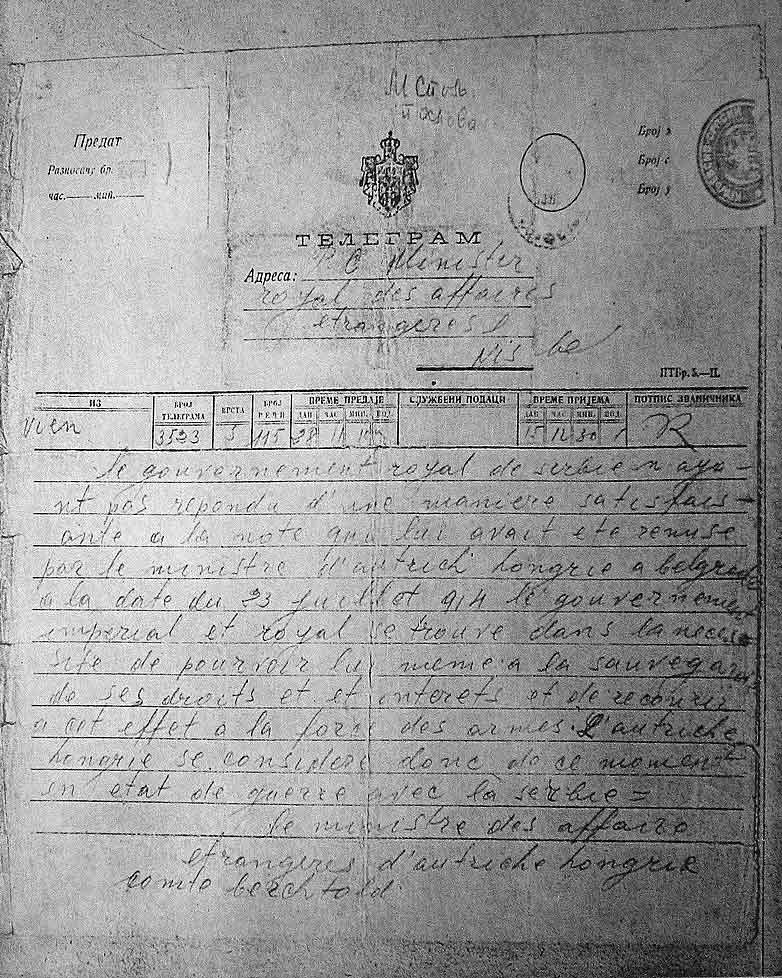 М Споль.
послова
Предат
Разносачу бр.
час. мин.
Број
Број с
Број у
ТЕЛЕГРАМ
Адреса: Minister
royal des affaires
etrangeres
Nis
ПТБр. 5.—II.
ИЗ
БРОЈ ТЕЛЕГРАМА
ВРСТА
БРОЈ РЕЧИ
ВРЕМЕ ПРЕДАЈЕ
СЛУЖБЕНИ ПОДАЦИ
ВРЕМЕ ПРИЈЕМА
ПОТПИС ЗВАНИЧНИКА
ДАН ЧАС МИН. ПОД.
ДАН ЧАС МИН. ПОД.
Vien 3523 5 115 28 11 10 15 12 30
le gouvernement royal de serbie n aya-
nt pas repondu d'une maniere satisfais-
ante a la note qui lui avait ete remise
par le ministre d'autrich hongrie a belgrade
a la date du 23 juillet 914 le gouvernement
imperial et royal se trouve dans la neces-
site de pourvoir lui meme a la sauvegarde
de ses droits et et interets et de recourir
a cet effet a la force des armes. L'autriche
hongrie se considere donc de ce moment
en etat de guerre avec la serbie =
le ministre des affaire
etrangeres d'autriche hongrie
comte berchtold.